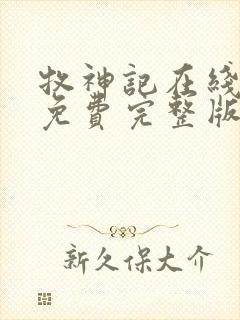 牧神記在綫
免費完整版
新久保大介